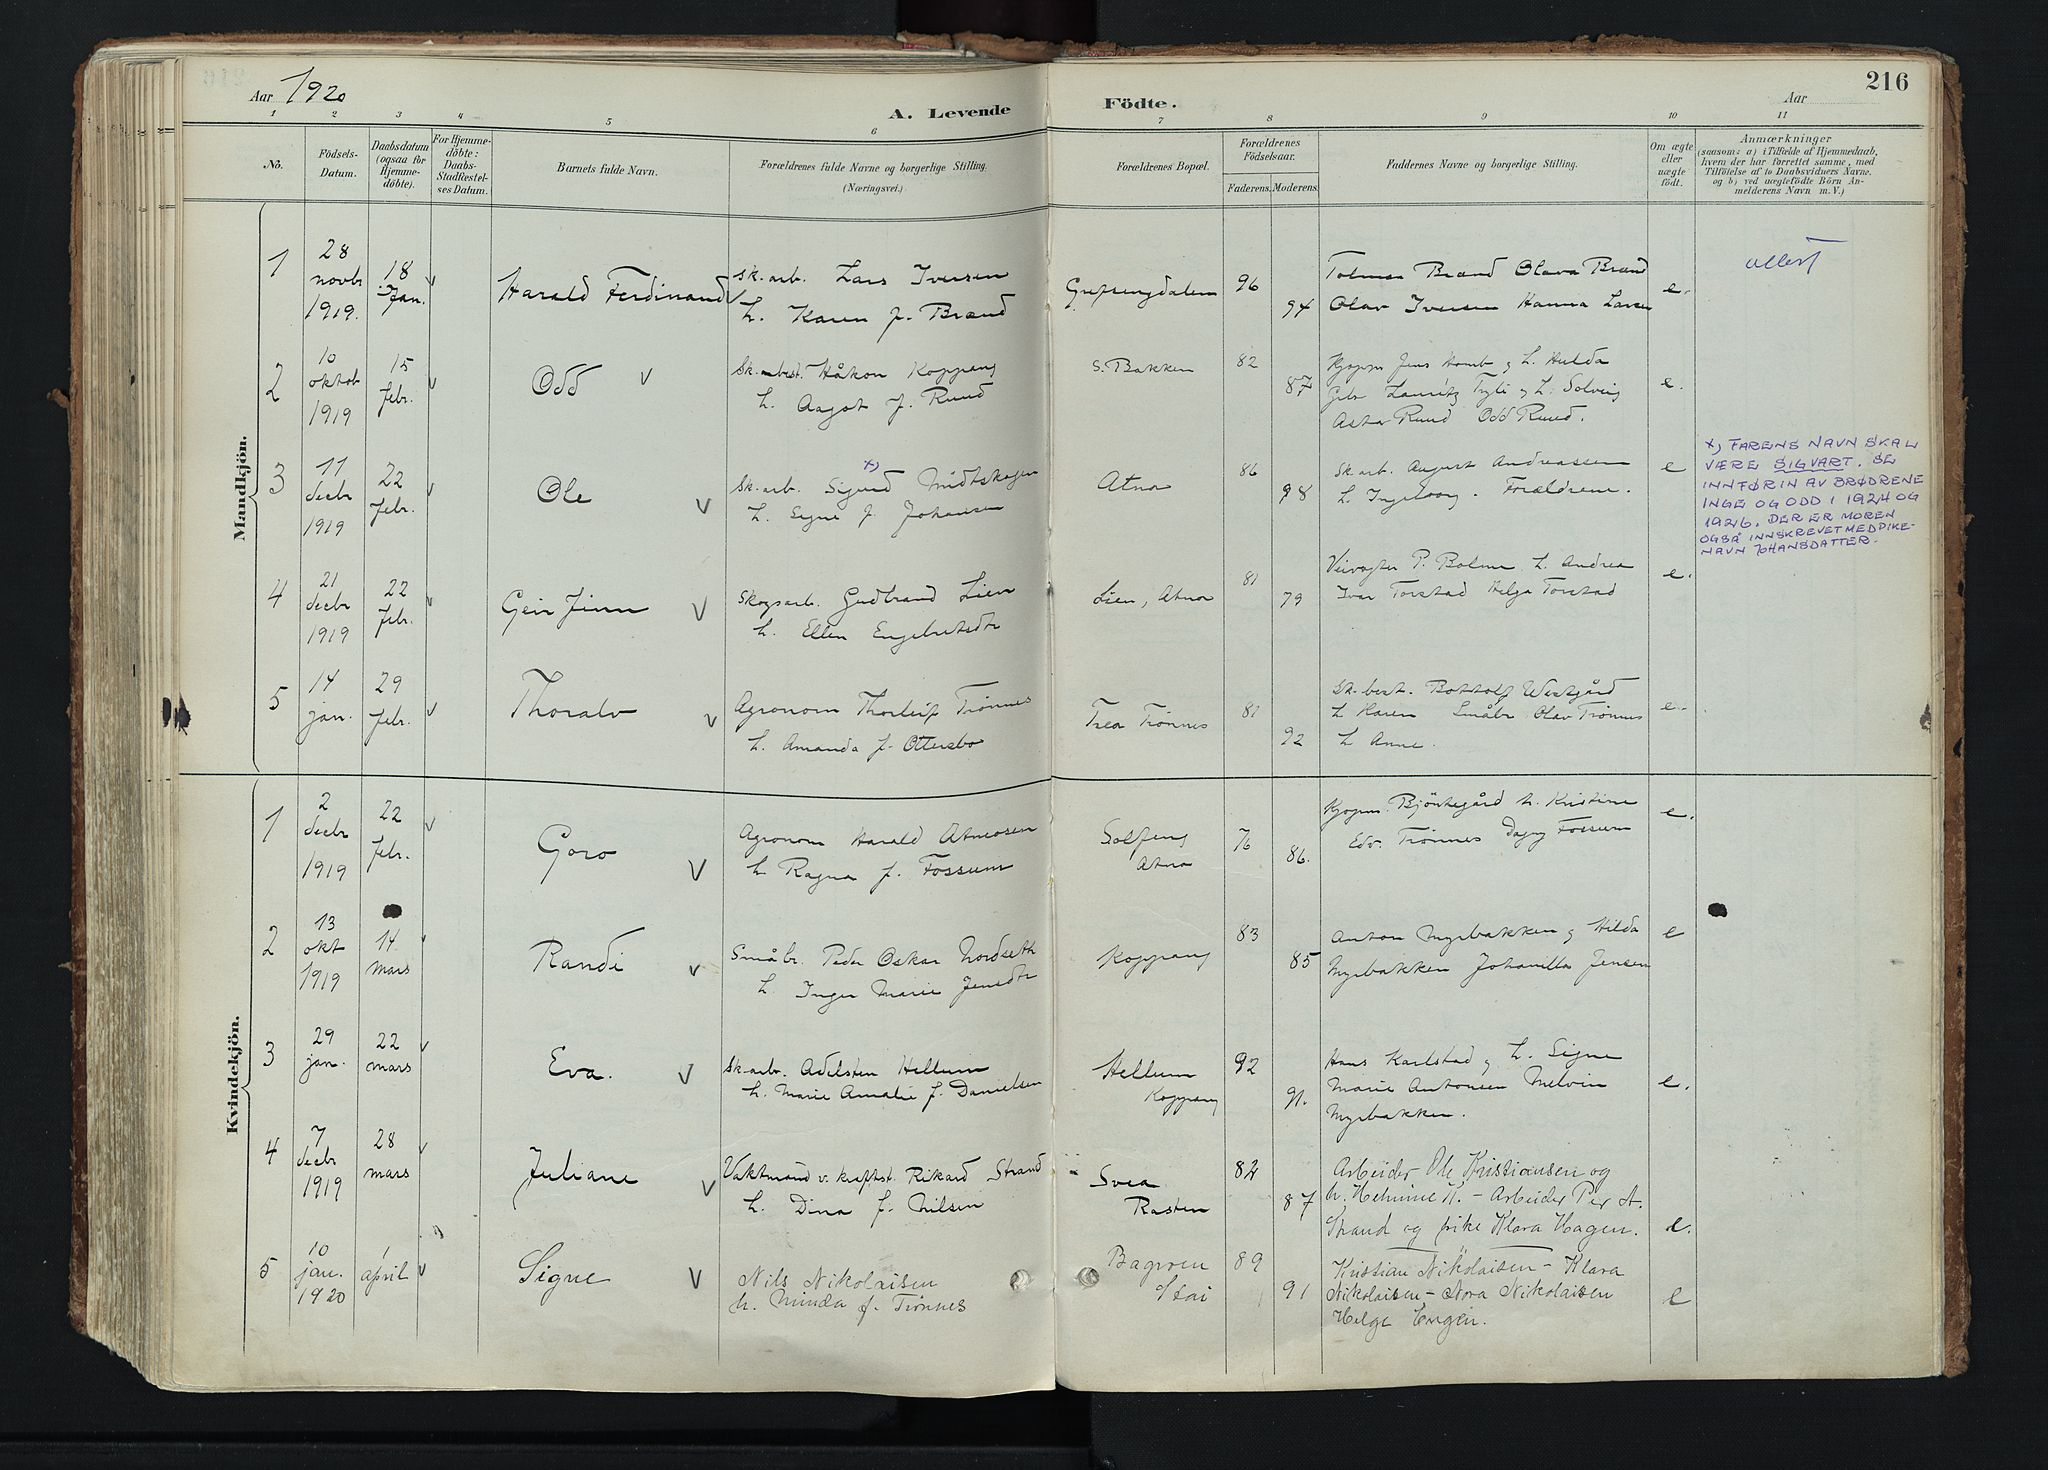 216
Aar 1920
A. Levende
Födte.
Aar
1 2 3 4 5 6 7 8 9 10 11
No.
Födsels-Datum.
Daabsdatum (ogsaa for Hjemme-döbte).
For Hjemme-döbte: Daabs-Stadfæstel-ses Datum.
Barnets fulde Navn.
Forældrenes fulde Navne og borgerlige Stilling.
(Næringsvei.)
Forældrenes Bopæl.
Forældrenes Födselsaar.
Faderens. Moderens.
Faddernes Navne og borgerlige Stilling.
Om ægte eller uægte födt.
Anmærkninger
(saasom: a) i Tilfælde af Hjemmedaab, hvem der har forrettet samme, med Tilföielse af to Daabsvidners Navne. og b) ved uægtefödte Börn An-melderens Navn m. V.)
Mandkjön.
1
28 novbr 1919.
18 Jan.
Harald Ferdinand
Sk.arb. Lars Iversen
h. Karen f. Brænd
Grefsengdalen
96
94
Brænd Olava Brænd
Olav Iversen Hanna Larsen
e.
attest
2
10 oktob 1919
15 febr.
Odd
Sk.best. Håkon Koppang
h. Aagot f. Ruud
S. Bakken
82
87
Kjøpm Jens Homb og h. Hulda
Lauritz Tryli og h. Solveig
Ruud Odd Ruud.
e.
3
11 decbr 1919
22 febr.
Ole
x)
Sk.arb. Sigurd Midtskogen
h. Signe f. Johansen
Atna
86
98
Sk.arb. August Andreassen
h. Ingeborg. Forældrene.
e
x) FARENS NAVN SKAL
VÆRE SIGVART. SE
INNFØRIN AV BRØDRENE
INGE OG ODD I 1924 OG
1926. DER ER MOREN
OGSÅ INNSKREVET MED PIKE-
NAVN JOHANSDATTER.
4
21 decbr 1919
22 febr.
Geir Finn
Skogsarb. Gudbrand Lien
h. Ellen Engebretsdtr
Lien, Atna
81
79
Veivogter P. Bolme h. Andrea
Ivar Torstad Helga Torstad
e.
5
14 jan.
29 febr.
Thoralv
Agronom Thorleif Trønnes
h. Amanda f. Ottersbo
Trønnes
81
92
Sk.best. Bottolf Westgård
h Karen Småbr Olav Trønnes
h Anne.
e.
Kvindekjön.
1
2 decbr 1919
22 febr.
Goro
Agronom Harald Atneosen
h Ragna f. Fossum
Solfeng
Atna
76
86.
Kjøpm. Bjöntegård h. Kristine
Edv. Trønnes Dagny Fossum
e.
2
13 okt 1919
14 mars
Randi
Småbr. Peder Oskar Nordseth
h. Inger Marie Jensdtr
Koppang
83
85
Anton Myrbakken og Hilda
Myrbakken Johanilla Jensen
e
3
29 jan.
22 mars
Eva.
Sk.arb. Adelsten Hellum
h. Marie Amalie f. Danielsen
Hellum
Koppang
92
91.
Hans Karlstad og h. Signe
Marie Antonsen Melvin
Myrbakken.
e.
4
7 decbr 1919
28 mars
Juliane
Vaktmand v. kraftst. Rikard Strand
h. Dina f. Nilsen
Svea
Rasten
82
87
Arbeider Ole Kristiansen og
h. Helmine K. - Arbeider Per A.
Strand og pike Klara Hagen.
e.
5
10 jan. 1920
1 april
Signe
Nils Nikolaisen
h. Minda f. Trønnes
Bagroen
Stai
89
91
Kristian Nikolaisen - Klara
Nikolaisen - Nora Nikolaisen
Helge Engen.
e